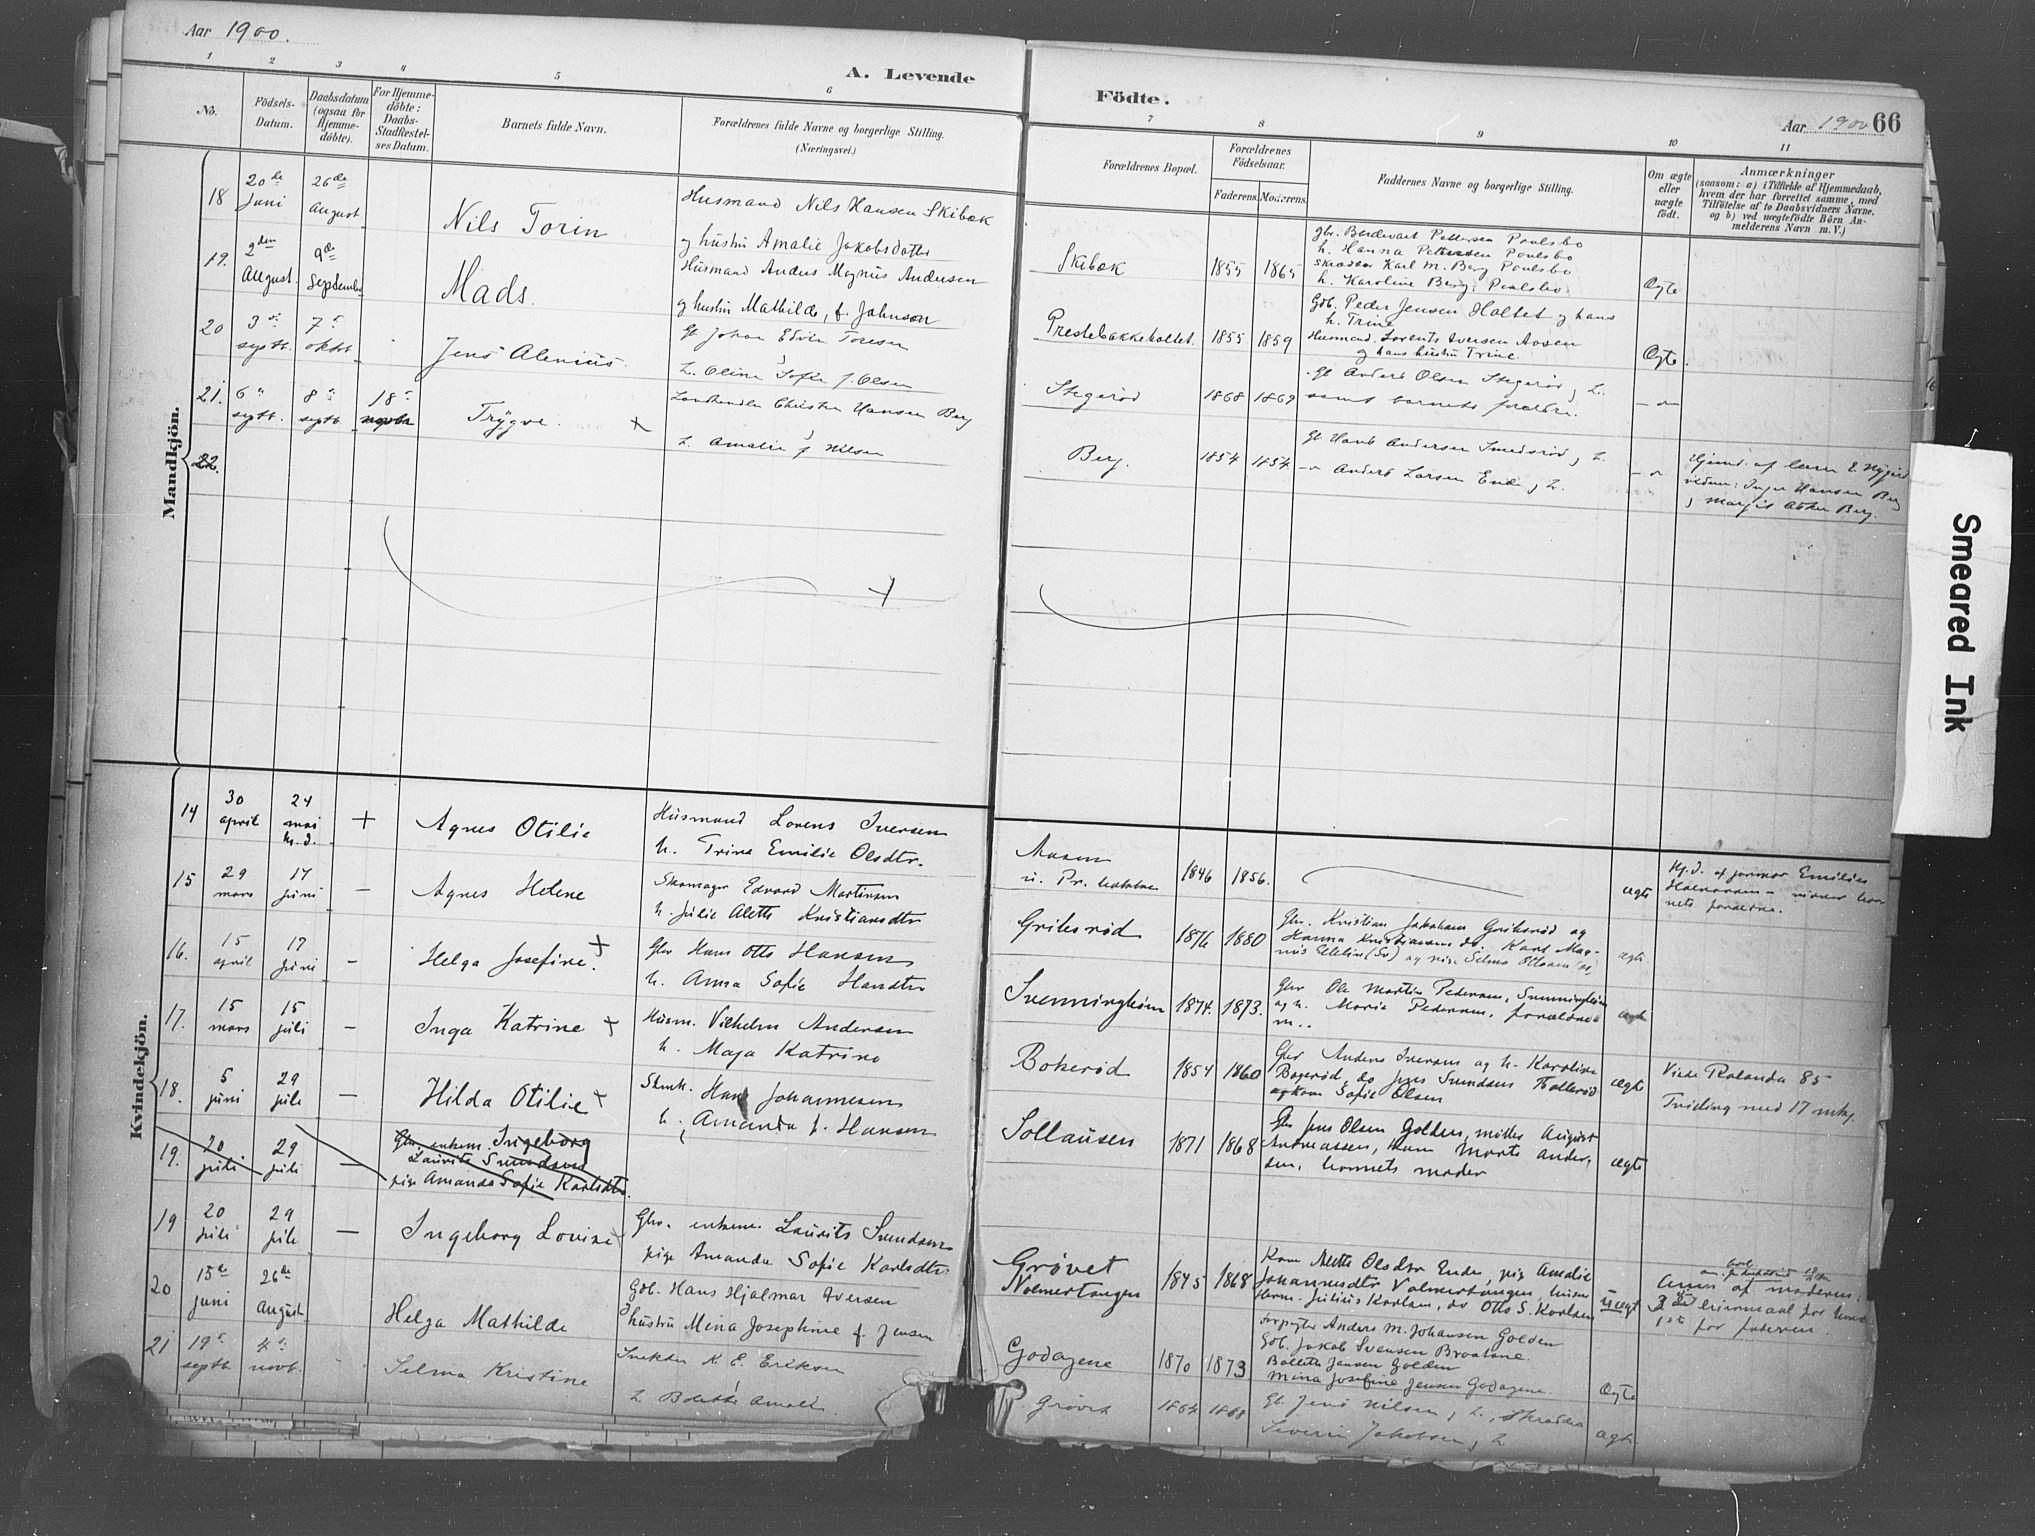 Aar 1900.
A. Levende
Födte.
Aar 1900 66
1 2 3 4 5 6 7 8 9 10 11
No.
Födsels-
Datum.
Daabsdatum
(ogsaa for
Hjemme-
döbte).
For Hjemme-
döbte:
Daabs-
Stadfæstel-
ses Datum.
Barnets fulde Navn.
Forældrenes fulde Navne og borgerlige Stilling.
(Næringsvei.)
Forældrenes Bopæl.
Forældrenes
Födselsaar.
Faderens. Moderens.
Faddernes Navne og borgerlige Stilling.
Om ægte
eller
uægte
födt.
Anmærkninger
(saasom: a) i Tilfælde af Hjemmedaab,
hvem der har forrettet samme, med
Tilföielse af to Daabsvidners Navne.
og b) ved uægtefödte Börn An-
melderens Navn m. V.)
Mandkjön.
18 20de Juni 26de August Nils Torin
Husmand Nils Hansen Skibæk
og hustru Amalie Jakobsdatter
Skibæk 1855 1865
gbr. Pettersen Poulsbo
h. Hanna Pettersen Poulsbo
Skrædder Karl M. Berg Poulsbo
h. Karoline Berg, Poulsbo.
Ægte
19. 2den August 9de September Mads.
Husmand Anders Magnus Andersen
og hustru Mathilde, f. Johnson
Prestebakkeholtet. 1855 1859
Gdb. Peder Jensen Holtet og hans
h. Trine
Husmand Lorents Iversen Aasen
og hans hustru Trine.
Ægte.
20 3die septb. 7de oktb. Jens Alenius.
Gb Johan Edvin Toresen
h. Oline Sofie f. Olsen
Stegerød 1868 1869
Gb Anders Olsen Stegerød og h.
samt barnets forældre.
21. 6te septb. 8de septb. 18de novbr Trygve. +
Landhandler Christen Hansen Berg
h. Amalie f. Nilsen
Berg. 1854 1854
Gb Hans Andersen Smedsrød og h.
Anders Larsen Ende og h.
Hjemd. af
vidne: Inger Hansen Berg
og Margit Berg.
22.
Kvindekjön.
14 30 april 24 mai h.d. + Agnes Otilie
Husmand Lorens Iversen
h. Trine Emilie Olsdtr.
Aasen
u. Pr. bakke 1846 1856.
ægte
Hj.d. af jormor Emilie
Halvorsen – vidner bar-
nets forældre.
15 29 mars 17 juni – Agnes Helene
Skomager Edvard Martinsen
h. Julie Alette Kristiansdtr
Griksrød 1876 1880
Gbr. Kristian Jakobsen Griksrød og
Hanna Kristiansen do. Karl Mag-
nus og pige Selma Ottosen
ægte
16. 15 april 17 juni – Helga Josefine. +
Gbr Hans Otto Hansen
h. Anna Sofie Hansdtr
Svenningheim 1874. 1873.
Gbr Ole Martin Pedersen, Svenningheim
og h. Marie Pedersen, forældrene
ægte
17. 15 mars 15 juli – Inga Katrine +
Husm. Vilhelm Andersen
h. Maja Katrine
Bokerød 1854 1860
Gbr Anders Iversen og h. Karoline
Bogerød, do Jens Svendsen
Sofie Olsen
ægte
Vide Rolanda 85
Tvilling med 17 mkj.
18. 5 juni 29 juli – Hilda Otilie +
Skmk. Hans Johannesen
h. Amanda f. Hansen
Sollausen 1871 1868
Gb Jens Olsen Golden, møller August
Andreassen, kone Marte Ander-
sen, barnets moder
ægte
19. 20 juli 29 juli – Gbr. enkem. Ingeborg
Laurits Svendsen
pige Amanda Sofie Karlsdtr.
19 20 juli 29 juli – Ingeborg Lovise
Gbr. enkem. Laurits Svendsen
pige Amanda Sofie Karlsdtr
Grøvet
Volmertangen 1845 1868
Kone Mette Olsdtr Ende, pig Amalie
Johannesdtr Volmertangen, husm
Herm. Julius Karlsen, do Otto S. Karlsen
uægt
Anm. af moderen:
2det leiermaal for hende
1ste for faderen.
20 15de Juni 26de August Helga Mathilde
Gdb. Hans Hjalmar Iversen
& hustru Mina Josephine f. Jensen
Godagene 1870 1873
Forpagter Anders M. Johansen Golden
Gdb. Jakob Svensen Braatane.
Bolette Jensen Golden
Mina Josefine Jensen Godagene.
Ægte
21 19de septb 4de novb. Selma Kristine
Snekker K. E. Eriksen
h. Bolette Amalie.
Grøvet 1864 1868
Gb. Jens Nilsen og h., skrædder
Severin Jakobsen og h
ægte
Smeared Ink